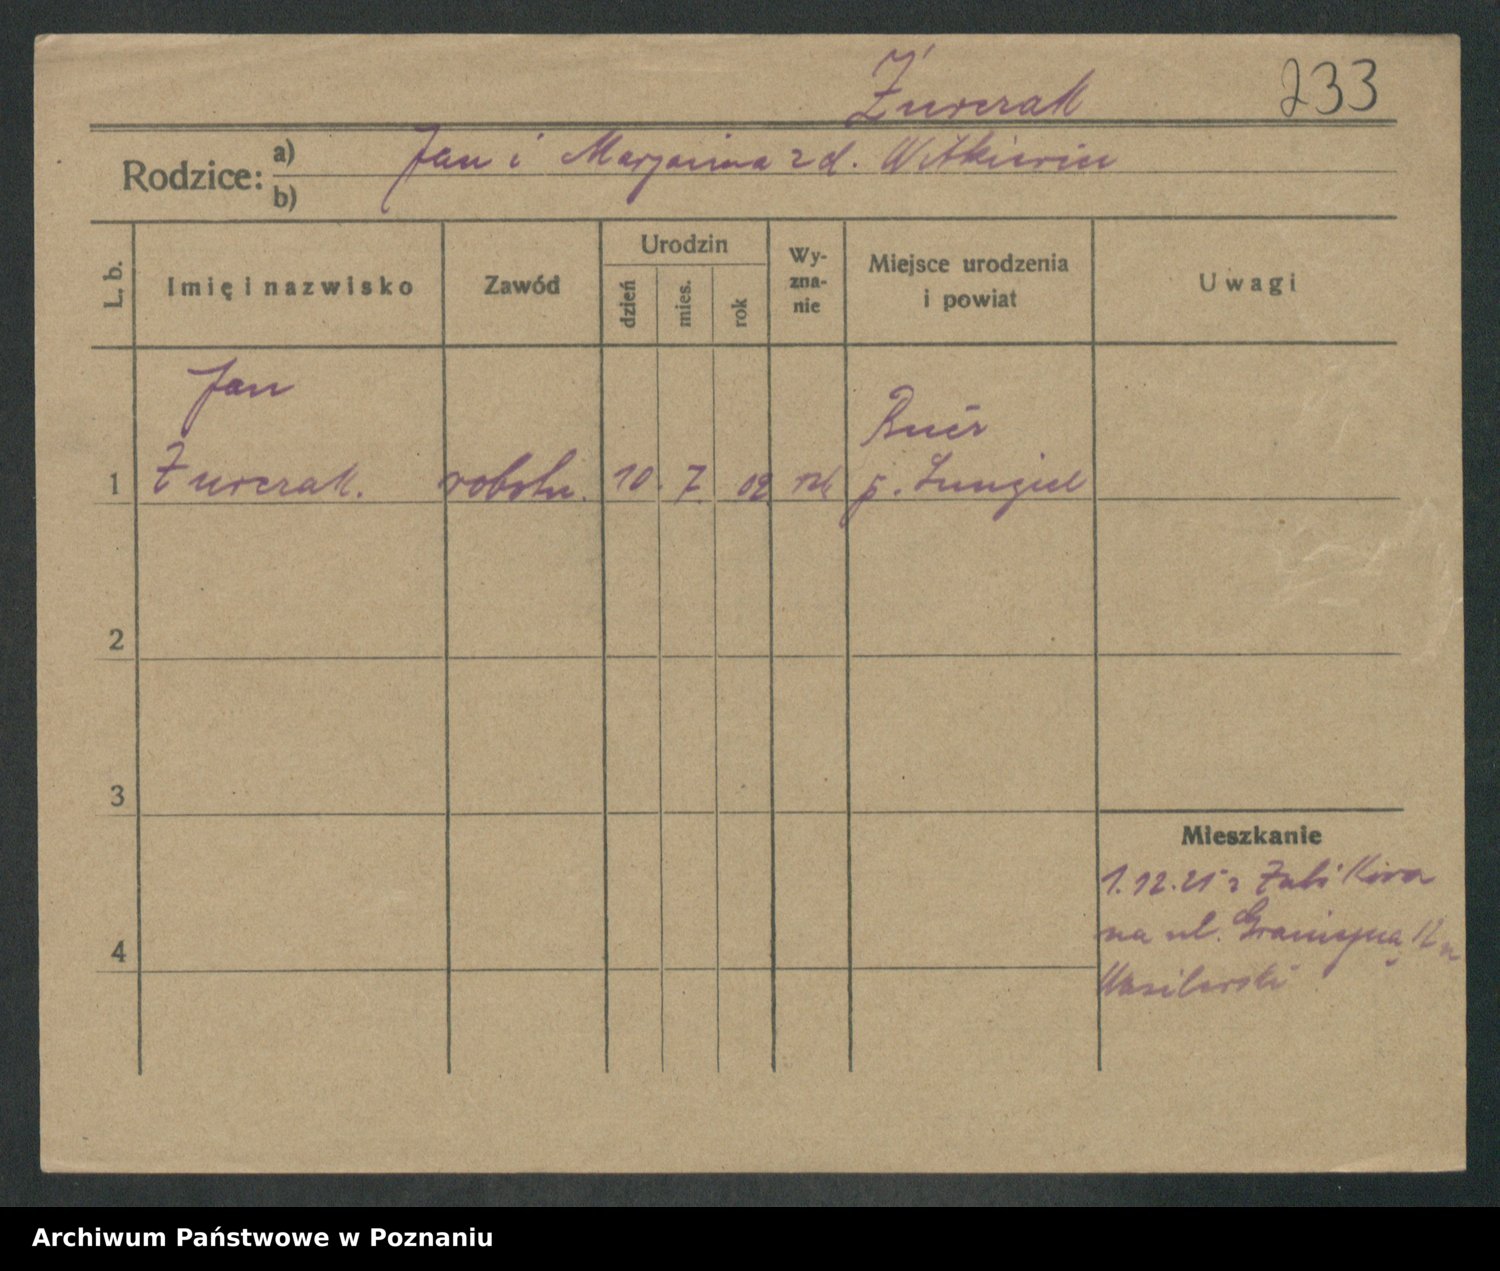 Żurczak 233
Rodzice: a) Jan i Marjanna z d. Witkiewicz
b)
L. b. Imię i nazwisko Zawód Urodzin dzień mies. rok Wyznanie Miejsce urodzenia i powiat Uwagi
Jan
Buer
1 Żurczak. robotn. 10. 7. 02 rk p.
2
3
Mieszkanie
1.12.25 z Żabikowa
na ul. Graniczną
4
Archiwum Państwowe w Poznaniu